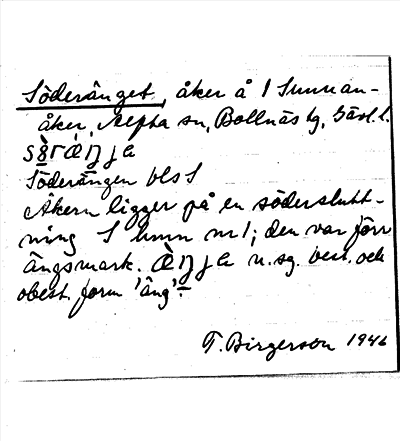 Söderänget, åker å 1 Sunnan-
åker, Alfta sn, Bollnäs tg, Gävl. l.
Söderängen bls S
Åkern ligger på en södersluttning
ning S hmn nr 1; den var förr
ängsmark. n. sg. best. och
obest. form 'äng'.
T. Birgerson 1946